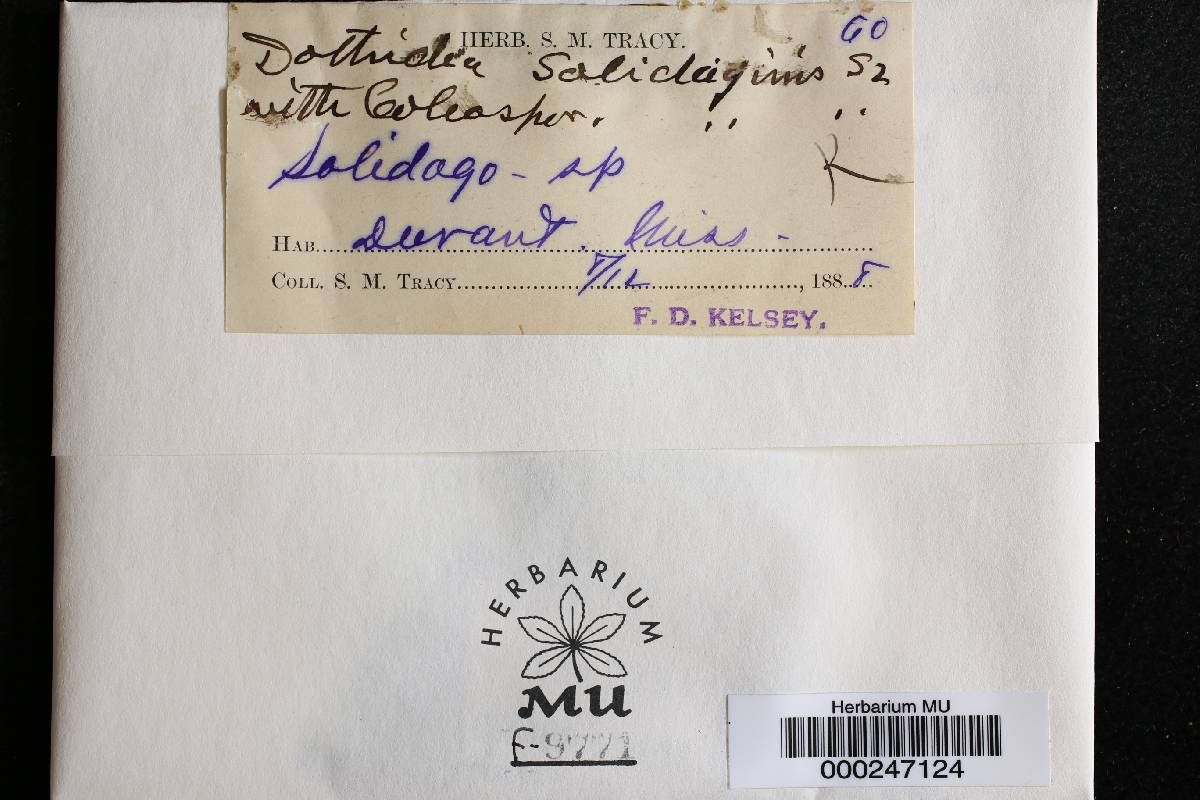 60
HERB. S. M. TRACY.
Dothidea Solidaginis Sz
with Coleospor. " "
Solidago - sp
K
HAB. Durant. Miss -
COLL. S. M. TRACY 7/12, 1888
F. D. KELSEY.
HERBARIUM
MU
F-9771
Herbarium MU
000247124